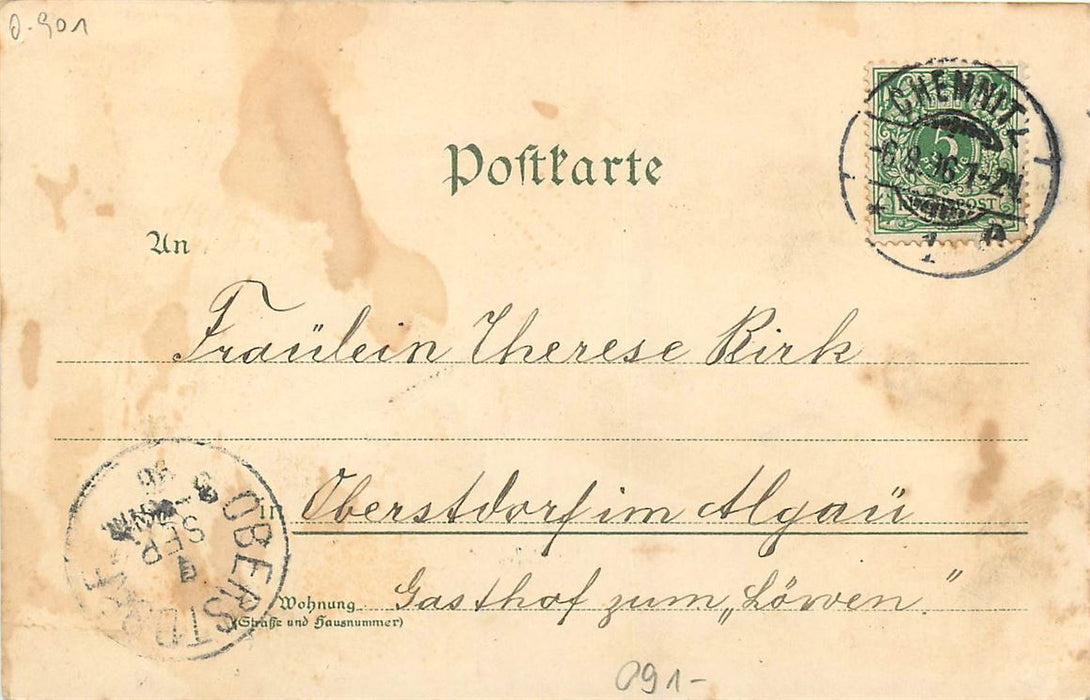 0-901
Postkarte
CHEMNITZ
5
REICHSPOST
1-2N
1
An
Fräulein Therese Birk
in Oberstdorf im Algäu
Wohnung Gasthof zum „Löwen.“
(Straße und Hausnummer)
OBERSTDORF
SEP
96
091-